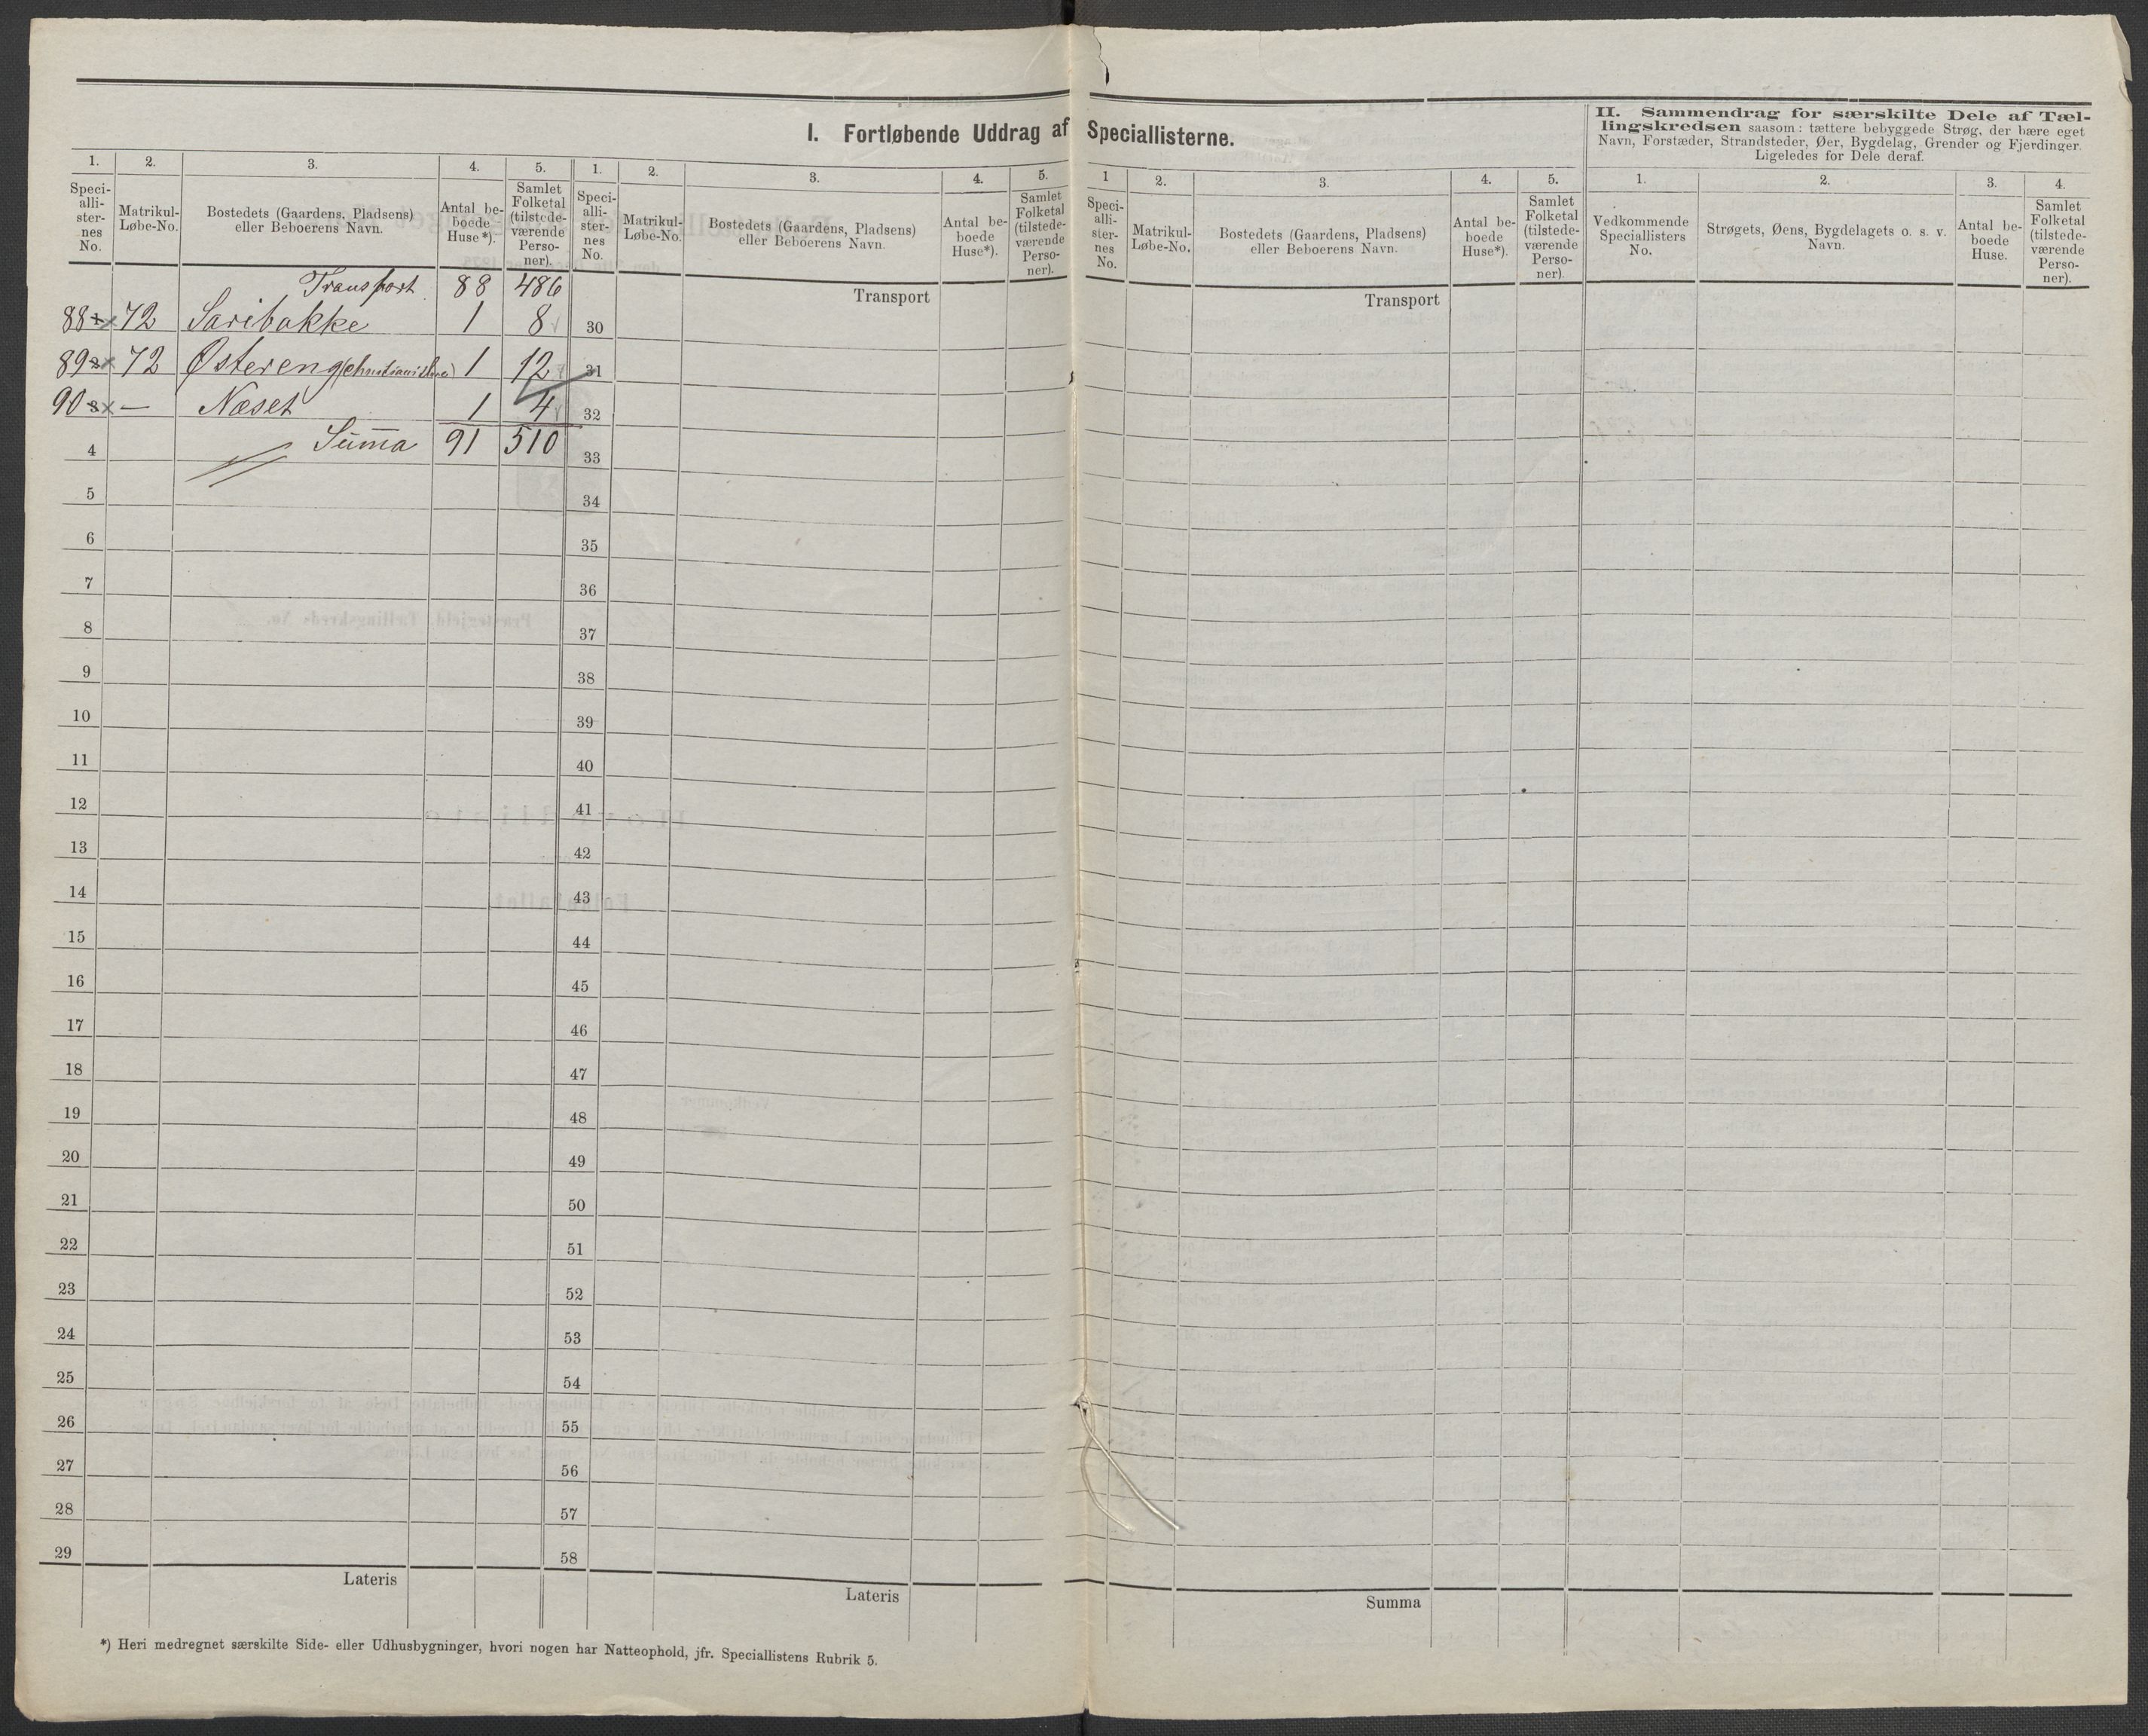 I. Fortløbende Uddrag af Speciallisterne.
II. Sammendrag for særskilte Dele af Tæl-
lingskredsen saasom: tættere bebyggede Strøg, der bære eget
Navn, Forstæder, Strandsteder, Øer, Bygdelag, Grender og Fjerdinger.
Ligeledes for Dele deraf.
1. 2. 3. 4. 5. 1. 2. 3. 4. 5. 1 2. 3. 4. 5. 1. 2. 3. 4.
Speci-
alli-
ster-
nes
No.
Matrikul-
Løbe-No.
Bostedets (Gaardens, Pladsens)
eller Beboerens Navn.
Antal be-
boede
Huse*).
Samlet
Folketal
(tilstede-
værende
Perso-
ner).
Speci-
alli-
ster-
nes
No.
Matrikul-
Løbe-No.
Bostedets (Gaardens, Pladsens)
eller Beboerens Navn.
Antal be-
boede
Huse*).
Samlet
Folketal
(tilstede-
værende
Perso-
ner).
Speci-
alli-
ster-
nes
No.
Matrikul-
Løbe-No.
Bostedets (Gaardens, Pladsens)
eller Beboerens Navn.
Antal be-
boede
Huse*).
Samlet
Folketal
(tilstede-
værende
Perso-
ner).
Vedkommende
Speciallisters
No.
Strøgets, Øens, Bygdelagets o. s. v.
Navn.
Antal be-
boede
Huse.
Samlet
Folketal
(tilstede-
værende
Perso-
ner).
Transport 88 486
Transport
Transport
88 72 Saribakke 1 8
30
89 72 Østereng 1 12
31
90 — Næset 1 4
32
4 Summa 91 510
33
5 34
6 35
7 36
8 37
9 38
10 39
11 40
12 41
13 42
14 43
15 44
16 45
17 46
18 47
19 48
20 49
21 50
22 51
23 52
24 53
25 54
26 55
27 56
28 57
29 58
Lateris
Lateris
Summa
*) Heri medregnet særskilte Side- eller Udhusbygninger, hvori nogen har Natteophold, jfr. Speciallistens Rubrik 5.